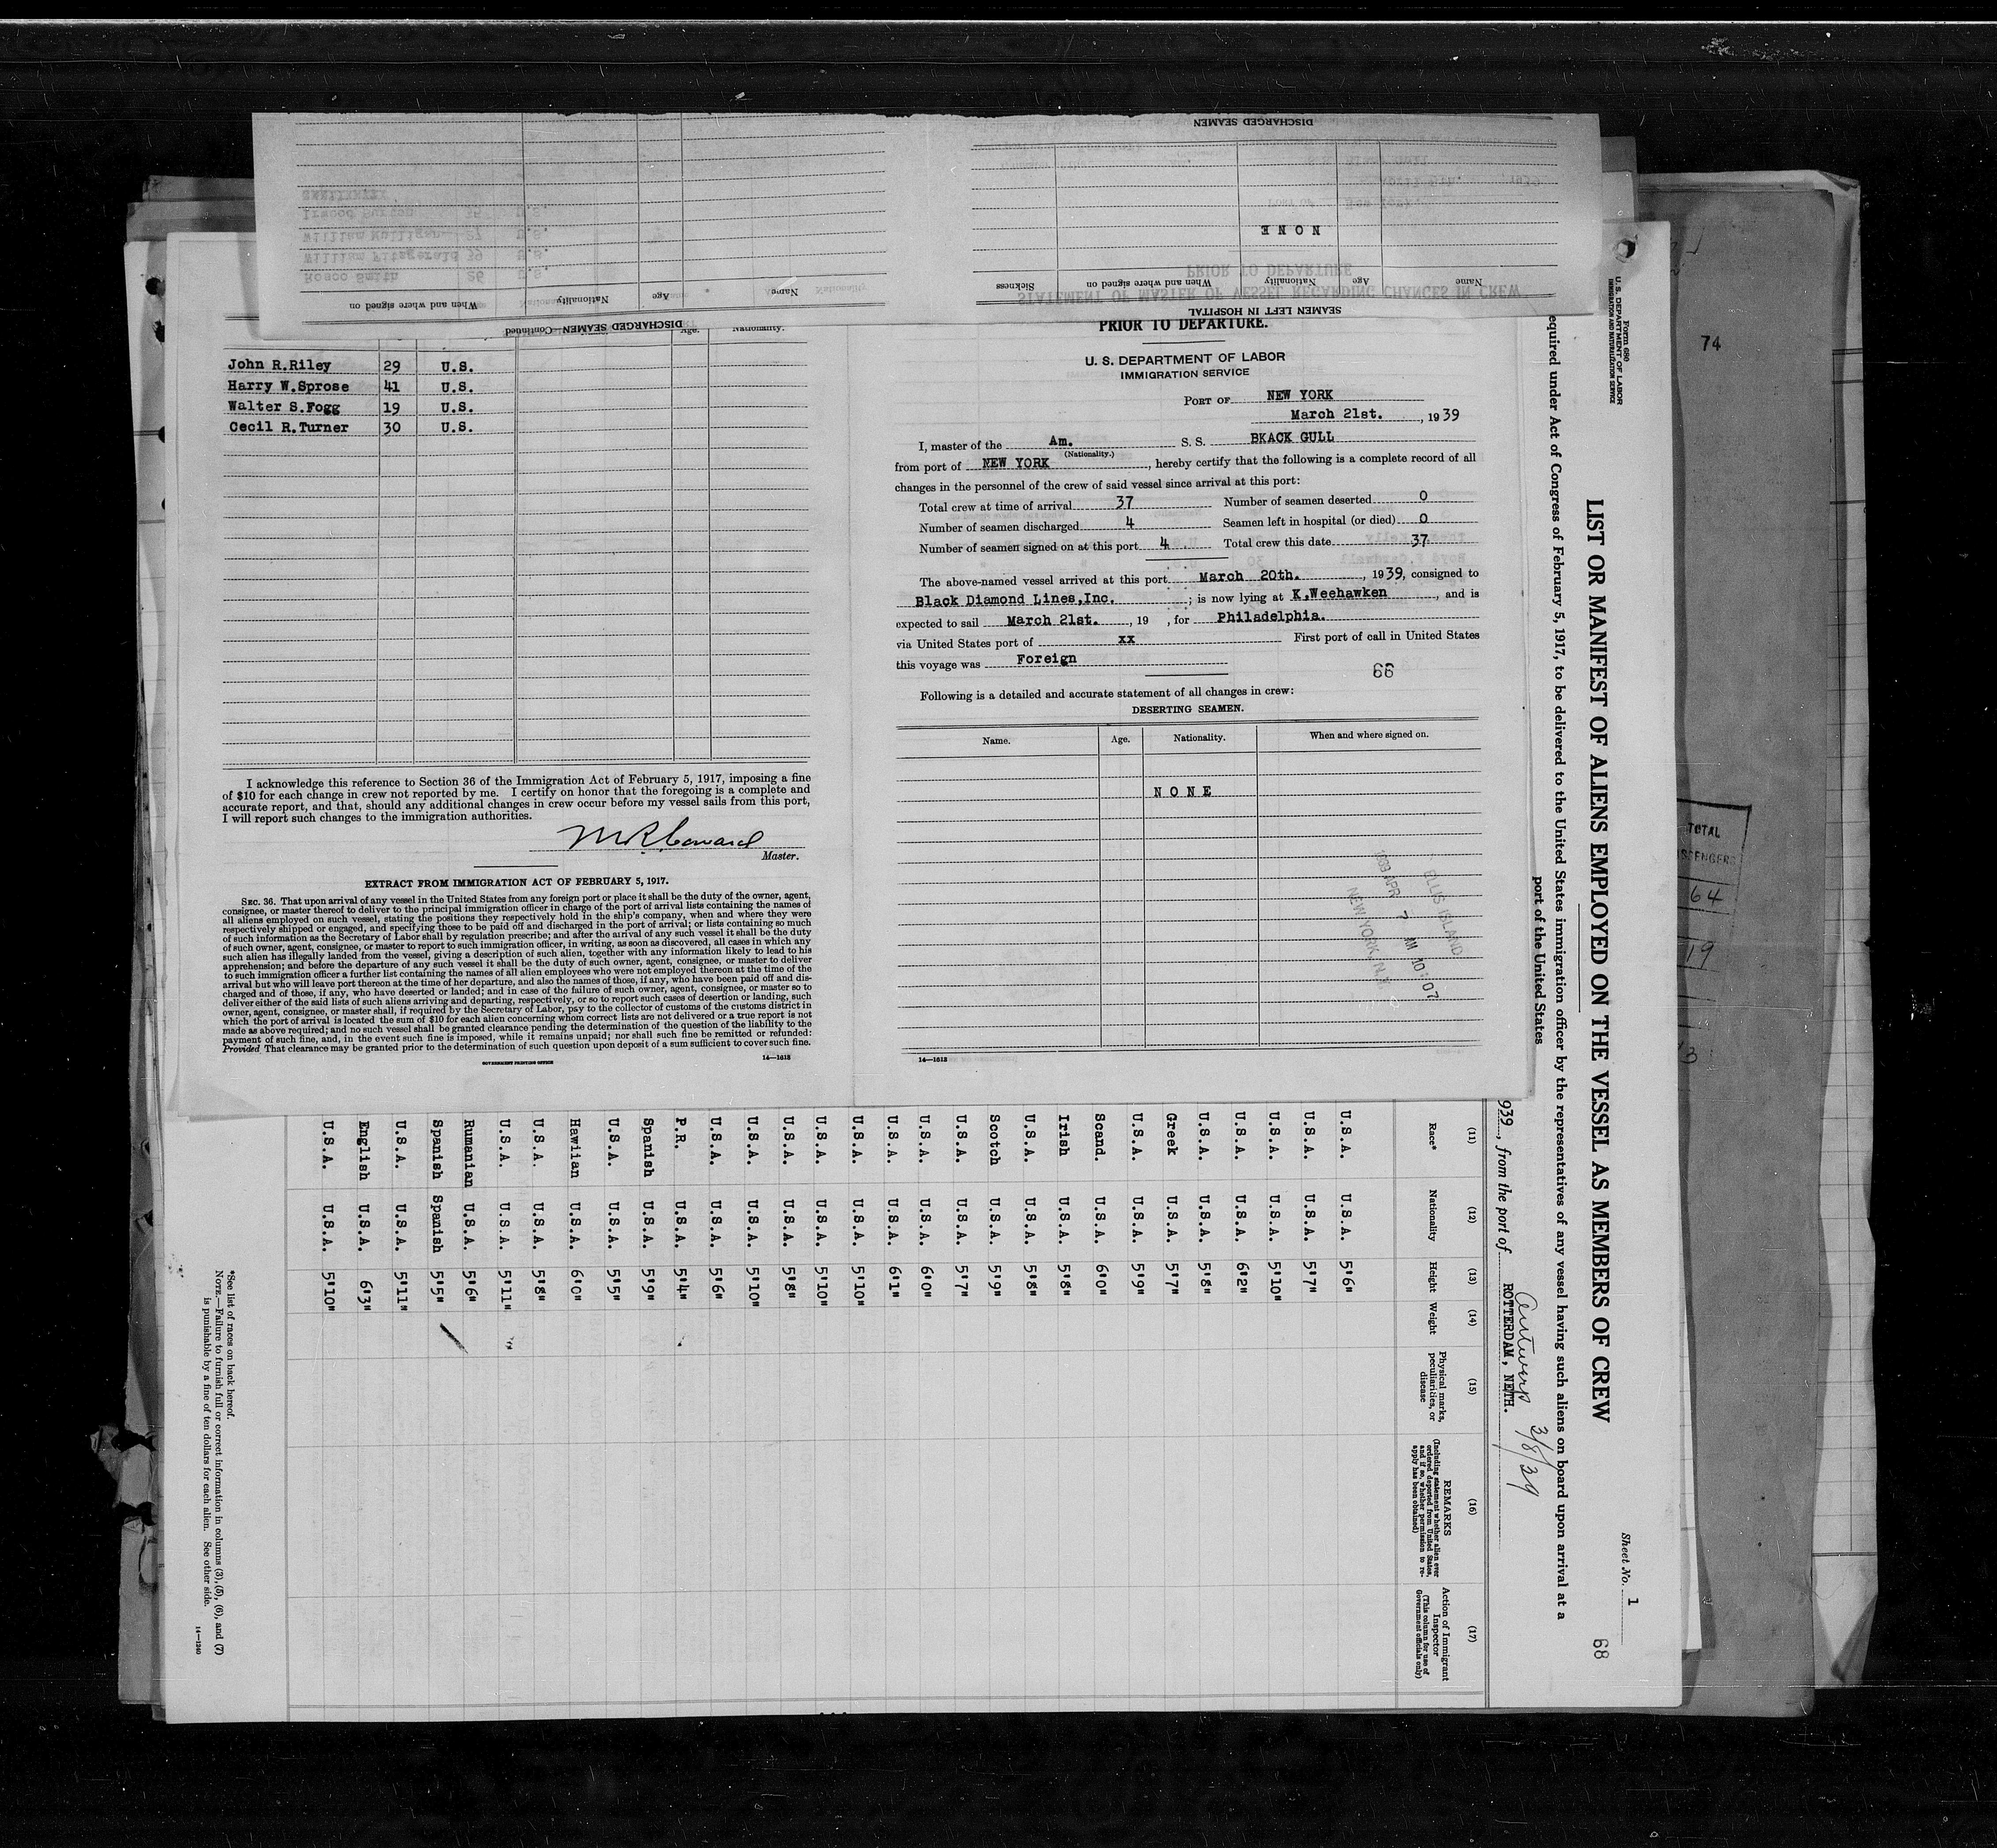 DISCHARGED SEAMEN
NONE
Name Age Nationality When and where signed on Sickness
SEAMEN LEFT IN HOSPITAL
Name Age Nationality When and where signed on
DISCHARGED SEAMEN—Continued
Age. Nationality.
John R.Riley 29 U.S.
Harry W.Sprose 41 U.S.
Walter S.Fogg 19 U.S.
Cecil R.Turner 30 U.S.
I acknowledge this reference to Section 36 of the Immigration Act of February 5, 1917, imposing a fine
of $10 for each change in crew not reported by me. I certify on honor that the foregoing is a complete and
accurate report, and that, should any additional changes in crew occur before my vessel sails from this port,
I will report such changes to the immigration authorities.
Master.
EXTRACT FROM IMMIGRATION ACT OF FEBRUARY 5, 1917.
SEC. 36. That upon arrival of any vessel in the United States from any foreign port or place it shall be the duty of the owner, agent,
consignee, or master thereof to deliver to the principal immigration officer in charge of the port of arrival lists containing the names of
all aliens employed on such vessel, stating the positions they respectively hold in the ship's company, when and where they were
respectively shipped or engaged, and specifying those to be paid off and discharged in the port of arrival; or lists containing so much
of such information as the Secretary of Labor shall by regulation prescribe; and after the arrival of any such vessel it shall be the duty
of such owner, agent, consignee, or master to report to such immigration officer, in writing, as soon as discovered, all cases in which any
such alien has illegally landed from the vessel, giving a description of such alien, together with any information likely to lead to his
apprehension; and before the departure of any such vessel it shall be the duty of such owner, agent, consignee, or master to deliver
to such immigration officer a further list containing the names of all alien employees who were not employed thereon at the time of the
arrival but who will leave port thereon at the time of her departure, and also the names of those, if any, who have been paid off and dis-
charged and of those, if any, who have deserted or landed; and in case of the failure of such owner, agent, consignee, or master so to
deliver either of the said lists of such aliens arriving and departing, respectively, or so to report such cases of desertion or landing, such
owner, agent, consignee, or master shall, if required by the Secretary of Labor, pay to the collector of customs of the customs district in
which the port of arrival is located the sum of $10 for each alien concerning whom correct lists are not delivered or a true report is not
made as above required; and no such vessel shall be granted clearance pending the determination of the question of the liability to the
payment of such fine, and, in the event such fine is imposed, while it remains unpaid; nor shall such fine be remitted or refunded:
Provided That clearance may be granted prior to the determination of such question upon deposit of a sum sufficient to cover such fine.
GOVERNMENT PRINTING OFFICE 14—1613
PRIOR TO DEPARTURE.
U. S. DEPARTMENT OF LABOR
IMMIGRATION SERVICE
PORT OF NEW YORK
March 21st., 1939
I, master of the Am. S. S. BKACK GULL
(Nationality.)
from port of NEW YORK, hereby certify that the following is a complete record of all
changes in the personnel of the crew of said vessel since arrival at this port:
Total crew at time of arrival 37 Number of seamen deserted 0
Number of seamen discharged 4 Seamen left in hospital (or died) 0
Number of seamen signed on at this port 4 Total crew this date 37
The above-named vessel arrived at this port March 20th., 1939, consigned to
Black Diamond Lines,Inc.; is now lying at K,Weehawken, and is
expected to sail March 21st., 19 , for Philadelphia.
via United States port of xx First port of call in United States
this voyage was Foreign
66
Following is a detailed and accurate statement of all changes in crew:
DESERTING SEAMEN.
Name. Age. Nationality. When and where signed on.
NONE
ELLIS ISLAND
1939 APR 7 AM 10 07
NEW YORK, N.Y.
14—1613
Form 680
U. S. DEPARTMENT OF LABOR
IMMIGRATION AND NATURALIZATION SERVICE
Sheet No. 1
68
LIST OR MANIFEST OF ALIENS EMPLOYED ON THE VESSEL AS MEMBERS OF CREW
equired under Act of Congress of February 5, 1917, to be delivered to the United States immigration officer by the representatives of any vessel having such aliens on board upon arrival at a
port of the United States
939, from the port of ROTTERDAM, NETH.
Antwerp 3/8/39
(11) (12) (13) (14) (15) (16) (17)
Race* Nationality Height Weight Physical marks, peculiarities, or disease REMARKS (Including statement whether alien ever ordered deported from United States, and if so, whether permission to re-apply has been obtained) Action of Immigrant Inspector (This column for use of Government officials only)
U.S.A. U.S.A. 5'6"
U.S.A. U.S.A. 5'7"
U.S.A. U.S.A. 5'10"
U.S.A. U.S.A. 6'2"
U.S.A. U.S.A. 5'8"
Greek U.S.A. 5'7"
U.S.A. U.S.A. 5'9"
Scand. U.S.A. 6'0"
Irish U.S.A. 5'8"
U.S.A. U.S.A. 5'8"
Scotch U.S.A. 5'9"
U.S.A. U.S.A. 5'7"
U.S.A. U.S.A. 6'0"
U.S.A. U.S.A. 6'1"
U.S.A. U.S.A. 5'10"
U.S.A. U.S.A. 5'10"
U.S.A. U.S.A. 5'8"
U.S.A. U.S.A. 5'10"
U.S.A. U.S.A. 5'6"
P.R. U.S.A. 5'4"
Spanish U.S.A. 5'9"
U.S.A. U.S.A. 5'5"
Hawiian U.S.A. 6'0"
U.S.A. U.S.A. 5'8"
U.S.A. U.S.A. 5'11"
Rumanian U.S.A. 5'6"
Spanish Spanish 5'5"
U.S.A. U.S.A. 5'11"
English U.S.A. 6'3"
U.S.A. U.S.A. 5'10"
*See list of races on back hereof.
NOTE.—Failure to furnish full or correct information in columns (3), (5), (6), and (7)
is punishable by a fine of ten dollars for each alien. See other side.
14—1240
74
TOTAL
64
19